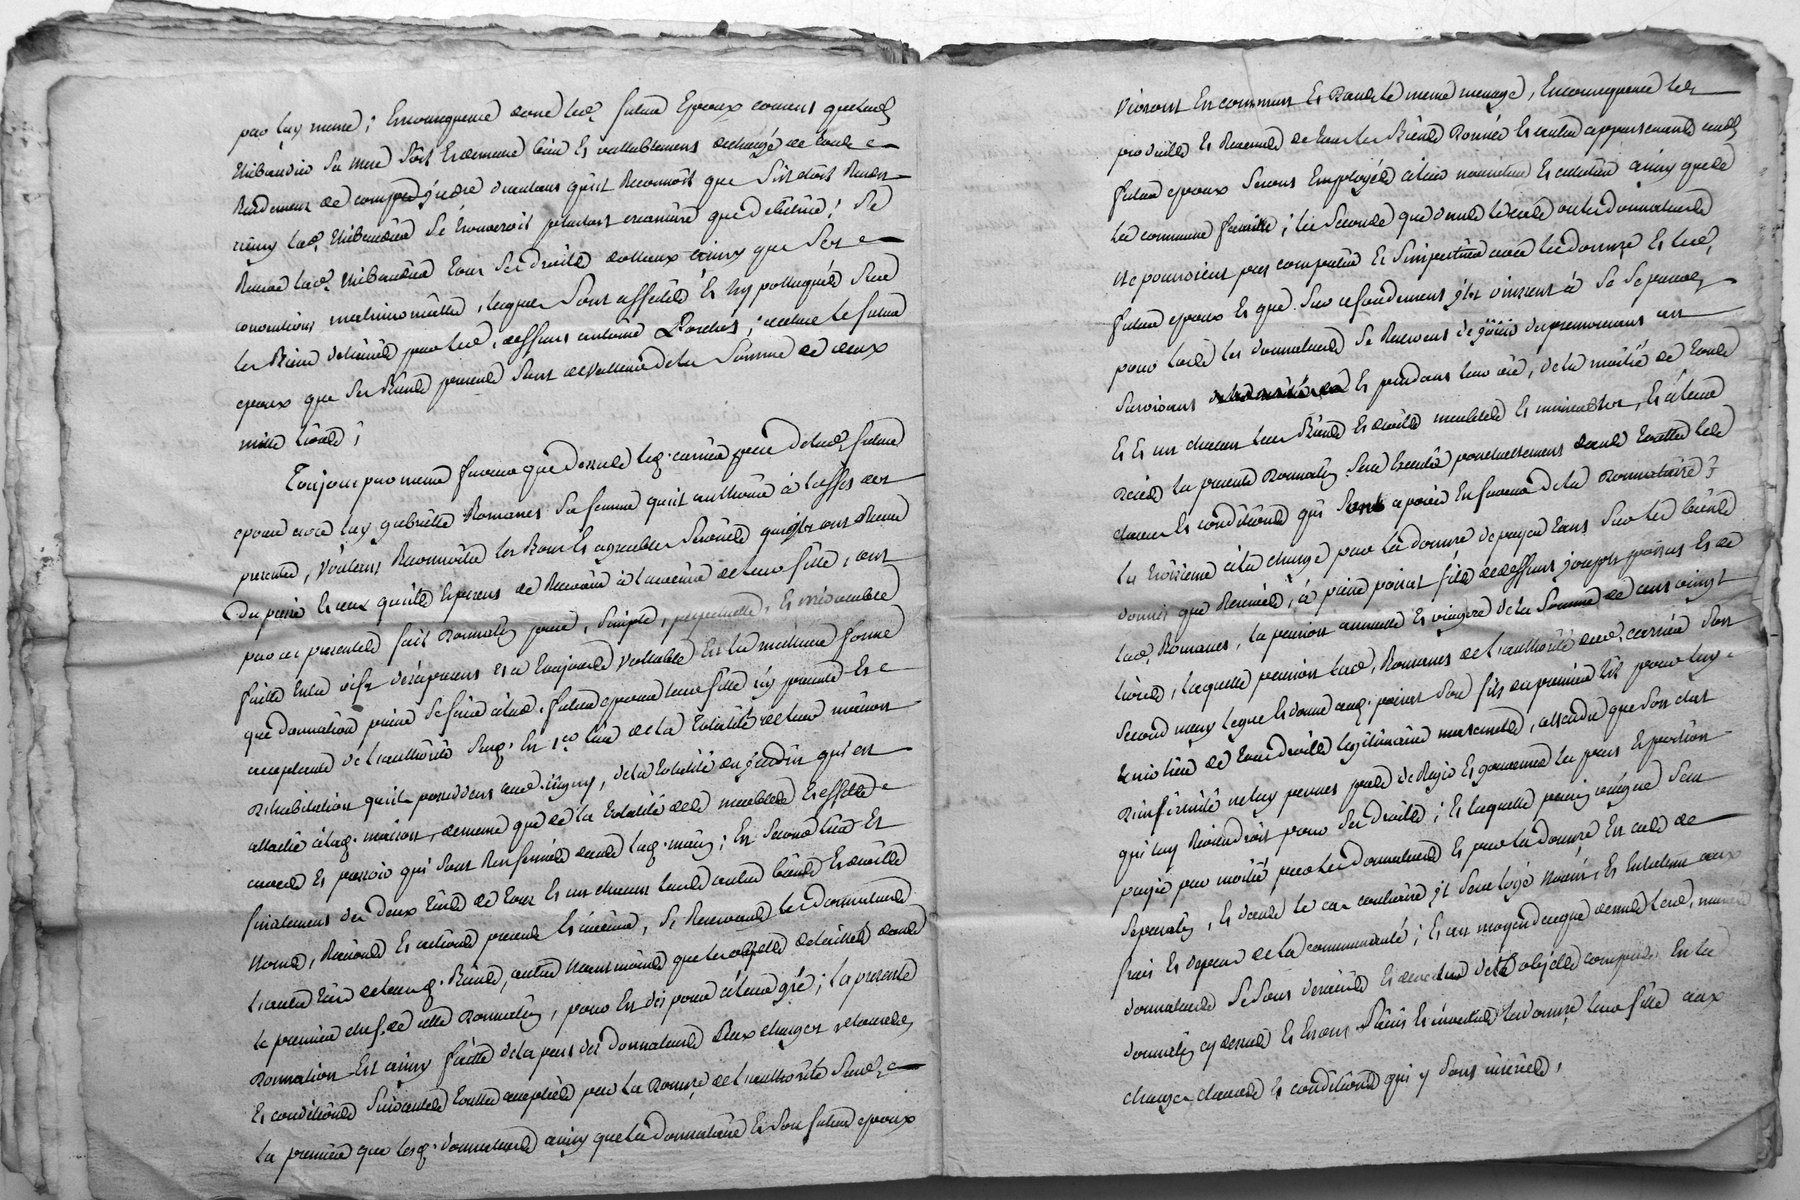 par luy meme; En consequence donc led. futur Epoux consent que lad.
Thibaudin sa mere soit Et demeure bien Et vallablement dechargé de toute
Reddement de compte d'icelle
rieny lad. Thibaudin se trouveroit pourtant creanciere que debitrice; Se
Reserve lad. Thibaudin tous ses droits dottaux ainsy que ses
conventions matrimonialles, lesquels sont affectés Et hypottequés sur
les Biens delaissés par led. deffunt antoine; declare le futur
epoux que ses Biens presents sont de valleur de la somme de deux
mille livres;
Toujours par meme faveur que dessus led. carrier pere de lad. future
epouse avec luy gabrielle Romanes sa femme qu'il authorise à l'effet des
presentes, voulant Reconnoitre les Bons Et agreables services qu'ils ont Receus
du passé Et ceux qu'ils Esperent de Recevoir à l'avenir de leur fille, ont
par ces presentes fait donnation pure, simple, perpetuelle, Et irrévocable
faitte Entre vifs dès à present Et à toujours vallable En la meilleure forme
que donnation puisse se faire à lad. future epouse leur fille icy presente Et
acceptante de l'authorité susd. En 1er lieu de la totalité de leur maison
d'habitation qu'ils possedent aud. , de la totalité du jardin qui est
attaché à lad. maison, de meme que de la totalité des meubles Et effets
morts Et qui sont Renfermés dans lad. maison; En second lieu Et
finalement des deux tiers de tous Et un chacuns leurs autres biens Et droits
noms, Raisons Et actions presents Et à venir, se Reservant les donnateurs
l'autre tiers de leursd. Biens, autres neanmoins que les objets detaillés dans
le premier chef de cette donnation, pour En disposer à leur gré; la presente
donnation Est ainsy faitte de la part des donnateurs aux charges reserves
Et conditions suivantes touttes acceptées par la donnre de l'authorité susd.
la premiere que lesd. donnateurs ainsy que la donnataire Et son futur epoux
vivront En commun Et dans le meme menage, En consequence les
produits Et Revenus de tous les Biens donnés Et autres appartenants aud.
futur epoux seront Employés à leur nourriture Et entretien ainsy que de
la commune famille; la seconde que dans le cas ou les donnateurs
ne pourroient pas compatir Et simpatiser avec la donnre Et led.
futur epoux Et que sur ce fondement ils vinssent à se separer
pour lors les donnateurs se Reservent
survivant Et pendant leur vie, de la moitié de tous
Et un chacun leur Biens Et droits meubles Et immeubles, Et à leur
décès la presente donnation sera Executée ponctuellement dans touttes les
clauses Et conditions qui sont apposées En faveur de la donnataire;
la troisieme à la charge par la donnre de payer tant sur les biens
donnés que Reservés, à pierre poirat fils de deffunt joseph poirat Et de
lad. Romanes, la pension annuelle Et viagere de la somme de cent vingt
livres, laquelle pension lad. Romanes de l'authorité dud. carrier son
second mary legue Et donne aud. poirat son fils du premier lit pour luy
tenir lieu de tous droits legitimaires maternels, attendu que son etat
d'infirmité ne luy permet pas de Regir Et gouverner la part Et portion
qui luy Reviendroit pour ses droits; Et laquelle pension viagere sera
payée par moitié par les donnateurs Et par la donnre En cas de
separation, Et dans le cas contraire il sera logé nourri, Et Entretenu aux
frais Et depens de la communauté; Et au moyen de ce que dessus lesd. mariés
donnateurs se sont demis Et devetus des objets compris En la
donnation cy dessus Et En ont saisi Et investi la donnre leur fille aux
charges clauses Et conditions qui y sont inserées,